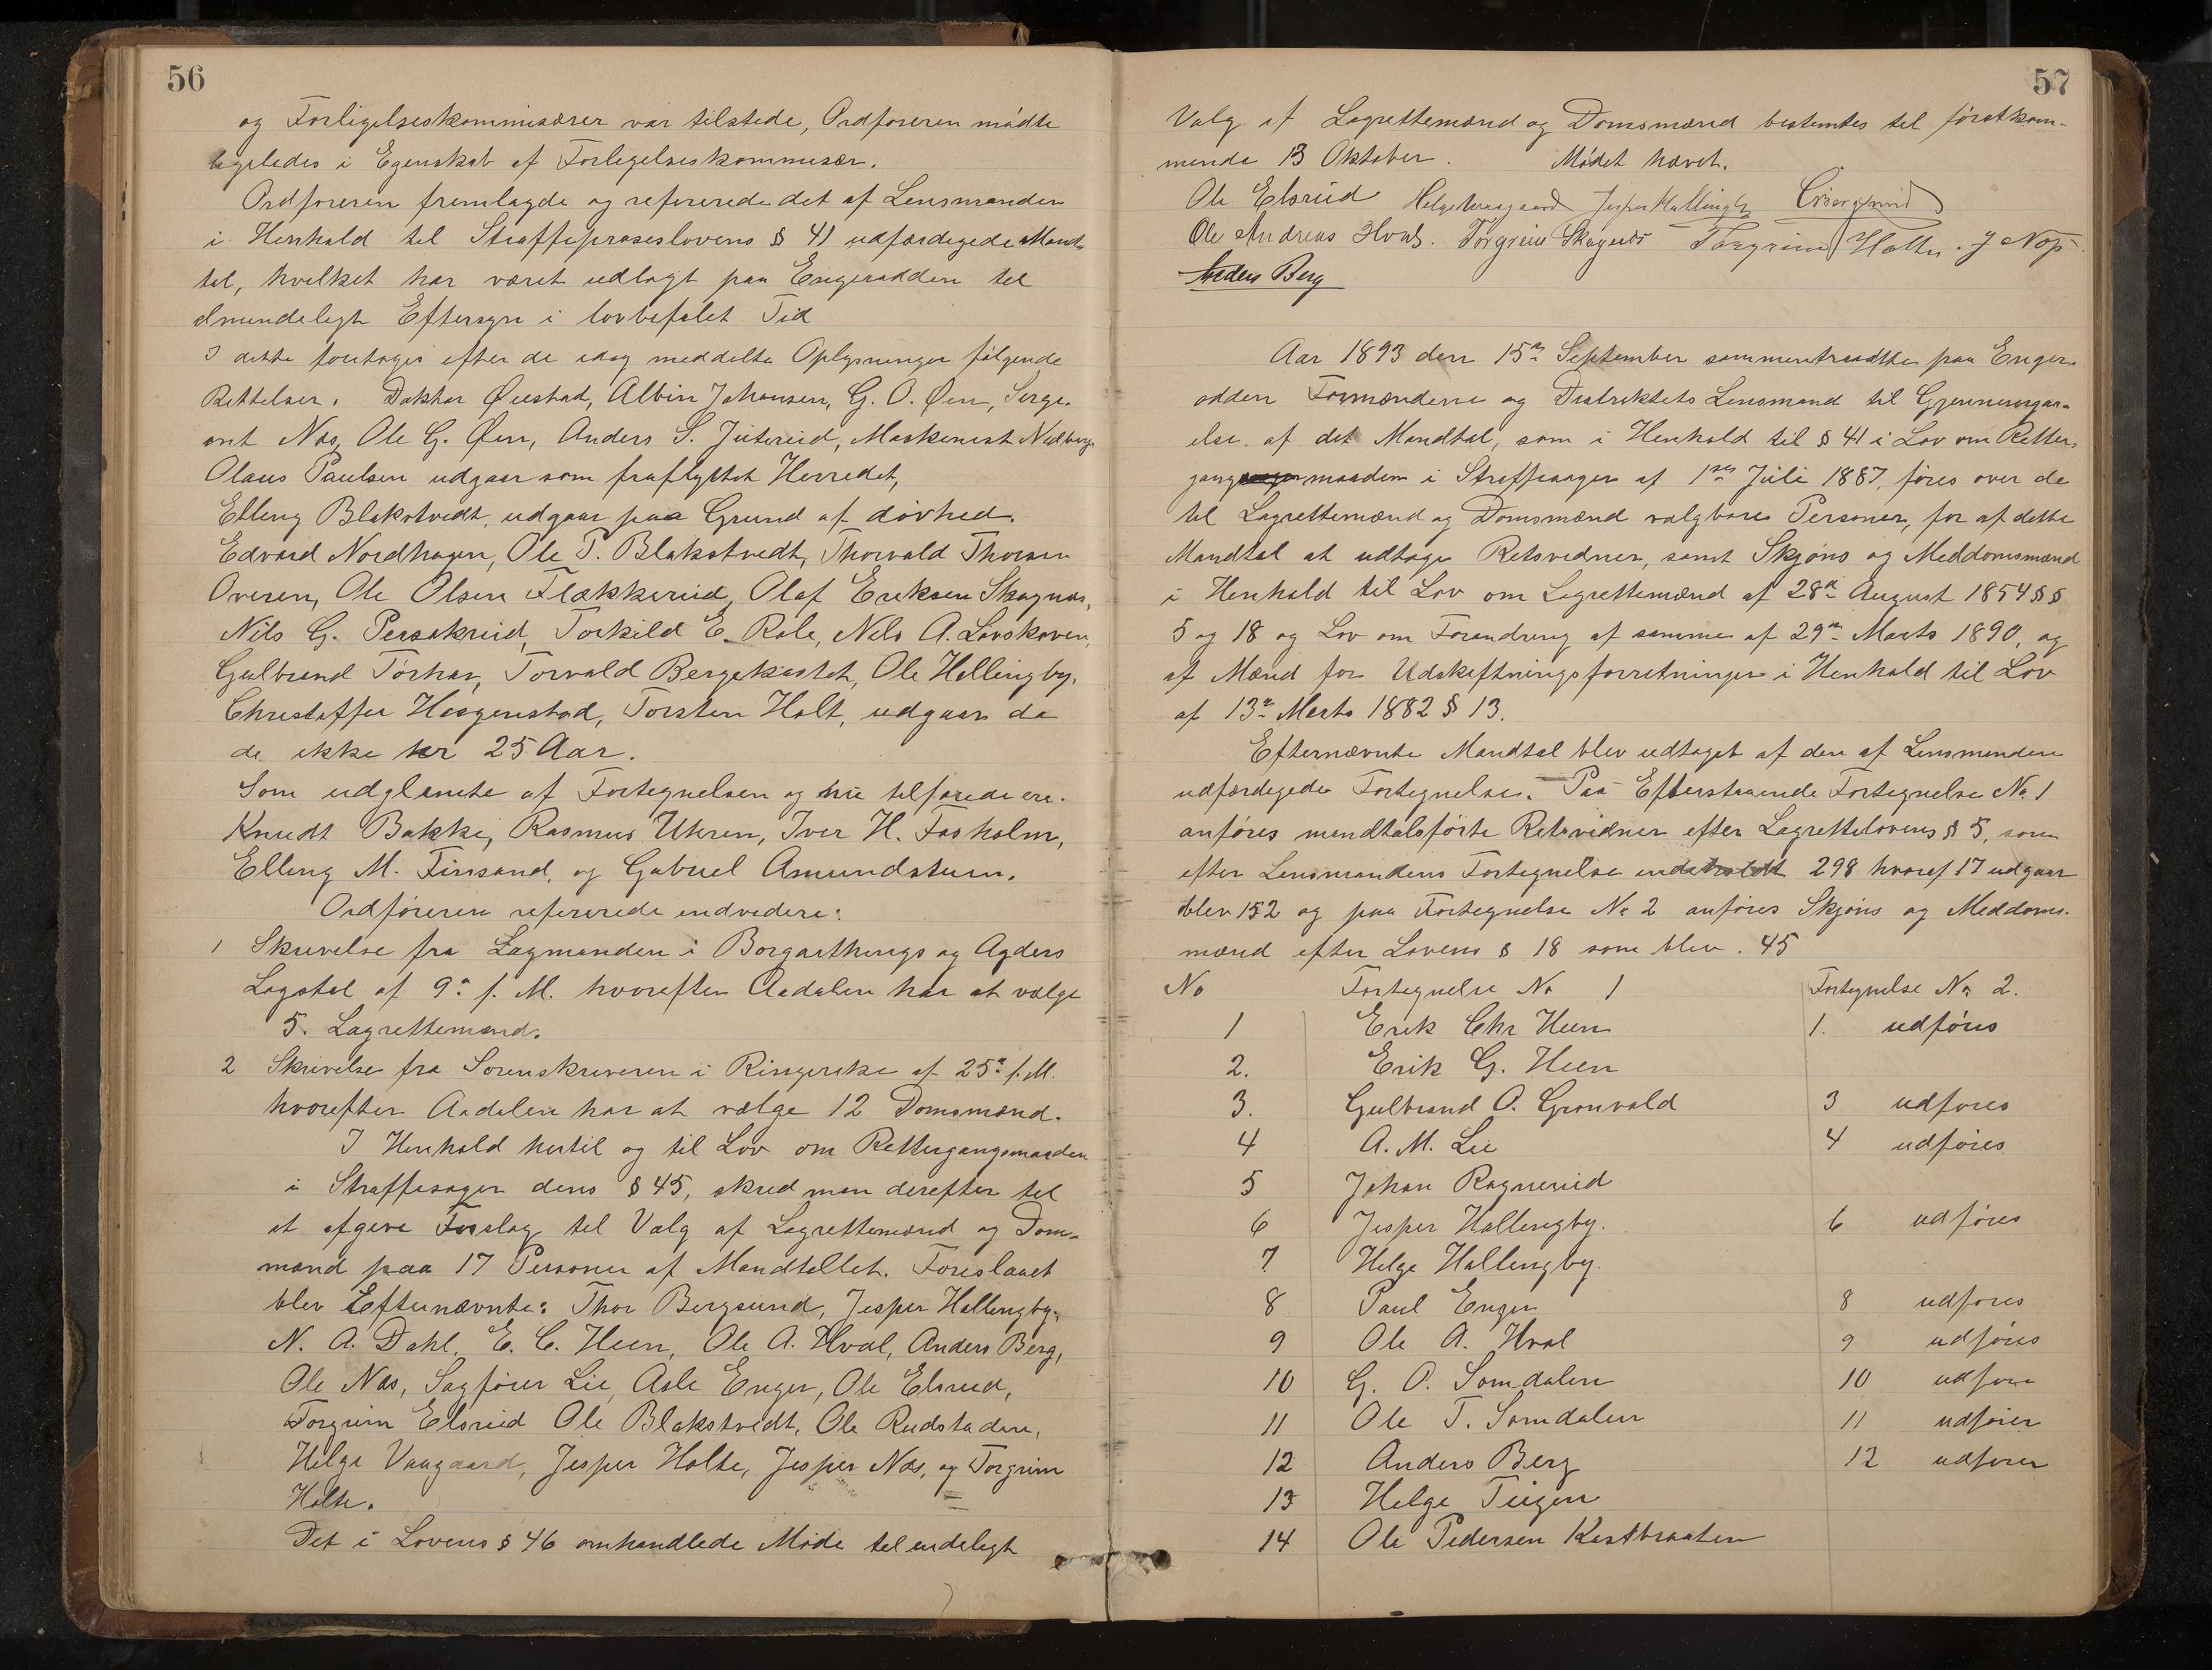 56
og Forligelseskommisærer var tilstede, Ordføreren mødte
ligeledes i Egenskab af Forligelseskommisær.
Ordføreren fremlagde og refererede det af Lensmanden
i Henhold til Straffeproseslovens § 41 udfærdigede Mand-
tal, hvilket har været udlagt paa Engerodden til
almindeligt Eftersyn i lovbefalet Tid
I dette foretages efter de idag meddelte Oplysninger følgende
Rettelser. Doktor Ørestad, Albin Johansen, G. O. Øen, Serge-
ant Næs, Ole G. Øen, Anders S. Juterud, Maskenist Nedberg,
Olaus Paulsen udgaar som fraflyttet Herredet,
Elling Blakstvedt, udgaar paa Grund af døvhed.
Edvard Nordhagen, Ole P. Blakstvedt, Thorvald Thorsen
Overen, Ole Olsen Flækkerud, Olaf Eriksen Skagnæs,
Nils G. Persakrud, Torkild E. Role, Nils A. Lovskoven,
Gulbrand Torhar, Torvald Bergekastet, Ole Hallingby,
Christoffer Haagenstad, Torsten Holt, udgaar da
de ikke er 25 Aar.
Som udglemte af Fortegnelsen og nu tilførede ere.
Knudt Bakke, Rasmus Uhren, Iver H. Fosholm,
Elling M. Finsand, og Gabriel Amundstuen.
Ordføreren refererede endvidere:
1 Skrivelse fra Lagmanden i Borgarthings og Agders
Lagstol af 9de f. M. hvorefter Aadalen har at vælge
5. Lagrettemænd.
2 Skrivelse fra Sorenskriveren i Ringerike af 25de f. M.
hvorefter Aadalen har at vælge 12 Domsmænd.
I Henhold hertil og til Lov om Rettergangsmaaden
i Straffesager dens § 45, skred man derefter til
at afgive Forslag til Valg af Lagrettemænd og Dom-
mænd paa 17 Personer af Mandtallet. Foreslaaet
blev Efternævnte: Thor Bergsund, Jesper Hallingby,
N. A. Dahl, E. C. Heen, Ole A. Hval, Anders Berg,
Ole Næs, Sagfører Lie, Asle Enger, Ole Elsrud,
Torgrim Elsrud Ole Blakstvedt, Ole Rudstaden,
Helge Vaagaard, Jesper Holte, Jesper Næs, og Torgrim
Holte.
Det i Lovens § 46 omhandlede Møde til endeligt
57
Valg af Lagrettemænd og Domsmænd bestemtes til førstkom-
mende 13 Oktober. Mødet hævet.
Ole Elsrud Helge Waagaard Jesper Hallingby
Ole Andreas Hval. Torgrim Skagnæs Torgrim Holte. J Næs
Anders Berg
Aar 1893 den 15de September sammentraadte paa Enger-
odden Formændene og Distriktets Lensmand til Gjennemgaa-
else af det Mandtal, som i Henhold til § 41 i Lov om Retter-
gangsmaaden i Straffesager af 1ste Juli 1887, føres over de
til Lagrettemænd og Domsmænd valgbare Personer, for af dette
Mandtal at udtage Retsvidner, samt Skjøns og Meddomsmænd
i Henhold til Lov om Lagrettemænd af 28de August 1854 §§
5 og 18 og Lov om Forandring af samme af 29de Marts 1890, og
af Mænd for Udskiftningsforretninger i Henhold til Lov
af 13de Marts 1882 § 13.
Efternævnte Mandtal blev udtaget af den af Lensmanden
udfærdigede Fortegnelse. Paa Efterstaaende Fortegnelse No 1
anføres mandtalsførte Retsvidner efter Lagrettelovens § 5, som
efter Lensmandens Fortegnelse indeholdt 298 hvoraf 17 udgaar
blev 152 og paa Fortegnelse No 2 anføres Skjøns og Meddoms-
mænd efter Lovens § 18 som blev. 45
No Fortegnelse No 1 Fortegnelse No 2.
1 Erik Chr Heen 1. udføres
2. Erik G. Heen
3. Gulbrand O. Grønvold 3 udføres
4 A. M. Lie 4 udføres
5 Johan Ragnerud
6 Jesper Hallingby. 6 udføres
7 Helge Hallingby.
8 Paul Enger 8 udføres
9 Ole A. Hval 9 udføres
10 G. O. Somdalen 10 udføres
11 Ole T. Somdalen 11 udføres
12 Anders Berg 12 udføres
13 Helge Teigen
14 Ole Pedersen Kastbraaten